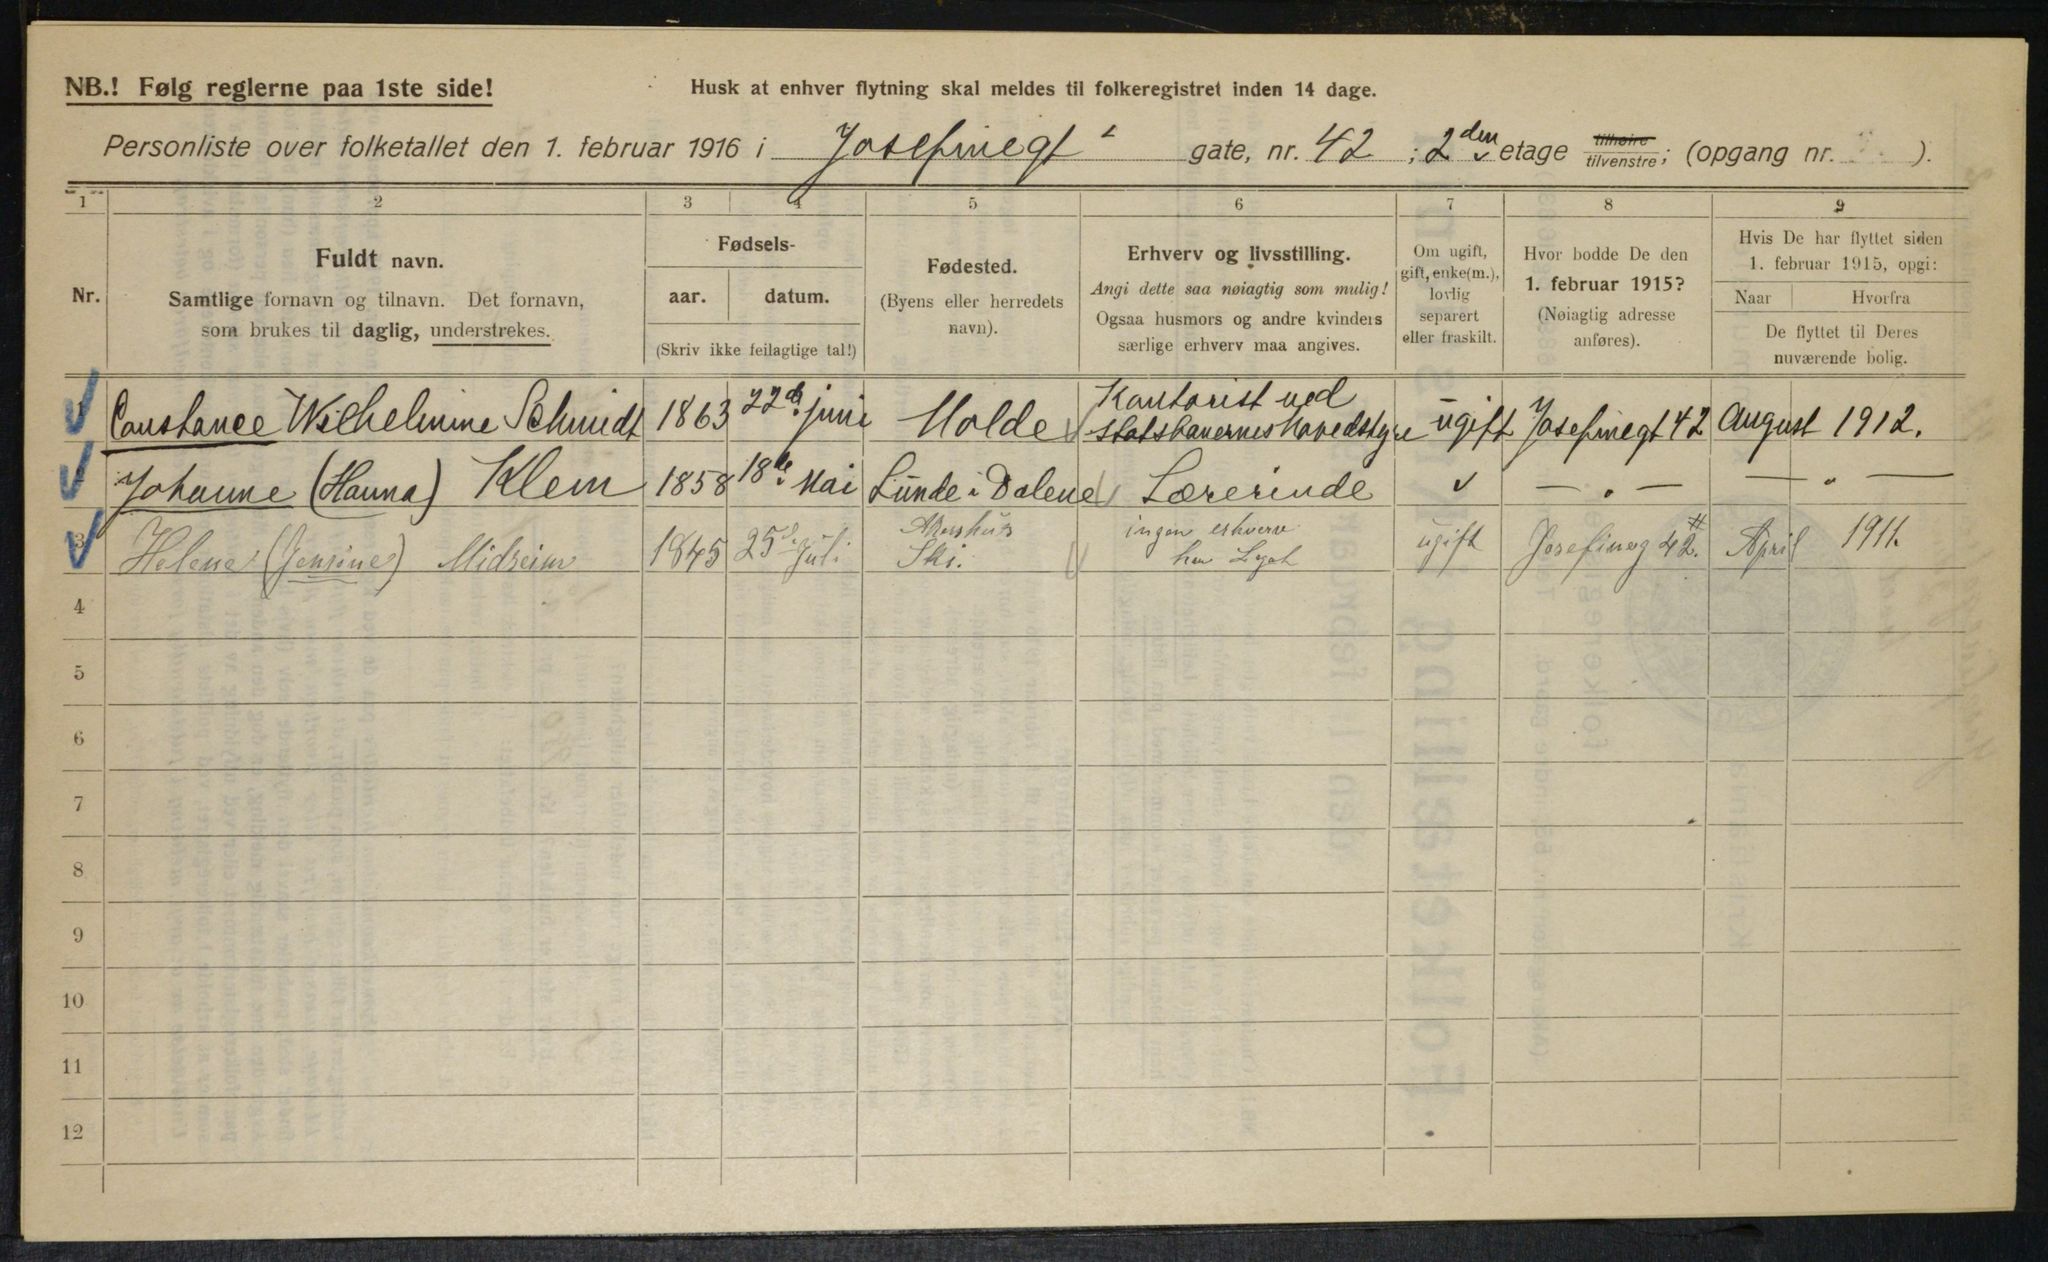 NB.! Følg reglerne paa 1ste side!
Husk at enhver flytning skal meldes til folkeregistret inden 14 dage.
Personliste over folketallet den 1. februar 1916 i Josefinegt gate, nr. 42 ; 2 den etage tilhøire tilvenstre ; (opgang nr. ).
1 2 3 4 5 6 7 8 9
Nr.
Fuldt navn.
Samtlige fornavn og tilnavn. Det fornavn,
som brukes til daglig, understrekes.
Fødsels-
aar. datum.
(Skriv ikke feilagtige tal!)
Fødested.
(Byens eller herredets
navn).
Erhverv og livsstilling.
Angi dette saa nøiagtig som mulig!
Ogsaa husmors og andre kvinders
særlige erhverv maa angives.
Om ugift,
gift, enke(m.),
lovlig
separert
eller fraskilt.
Hvor bodde De den
1. februar 1915?
(Nøiagtig adresse
anføres).
Hvis De har flyttet siden
1. februar 1915, opgi:
Naar Hvorfra
De flyttet til Deres
nuværende bolig.
1 Constance Wilhelmine Schmidt 1863 22de juni Molde Kontorist ved
statsbanernes hovedstyre ugift Josefinegt 42 August 1912.
2 Johanne (Hanna) Klem 1858 18de Mai Lunde i Dalene Lærerinde — „ — — „ —
3 Helene (Jensine) Midseim 1845 25de Juli Akershus
Ski. ingen erhverv
har Legat ugift Josefineg 42 II. April 1911.
4
5
6
7
8
9
10
11
12